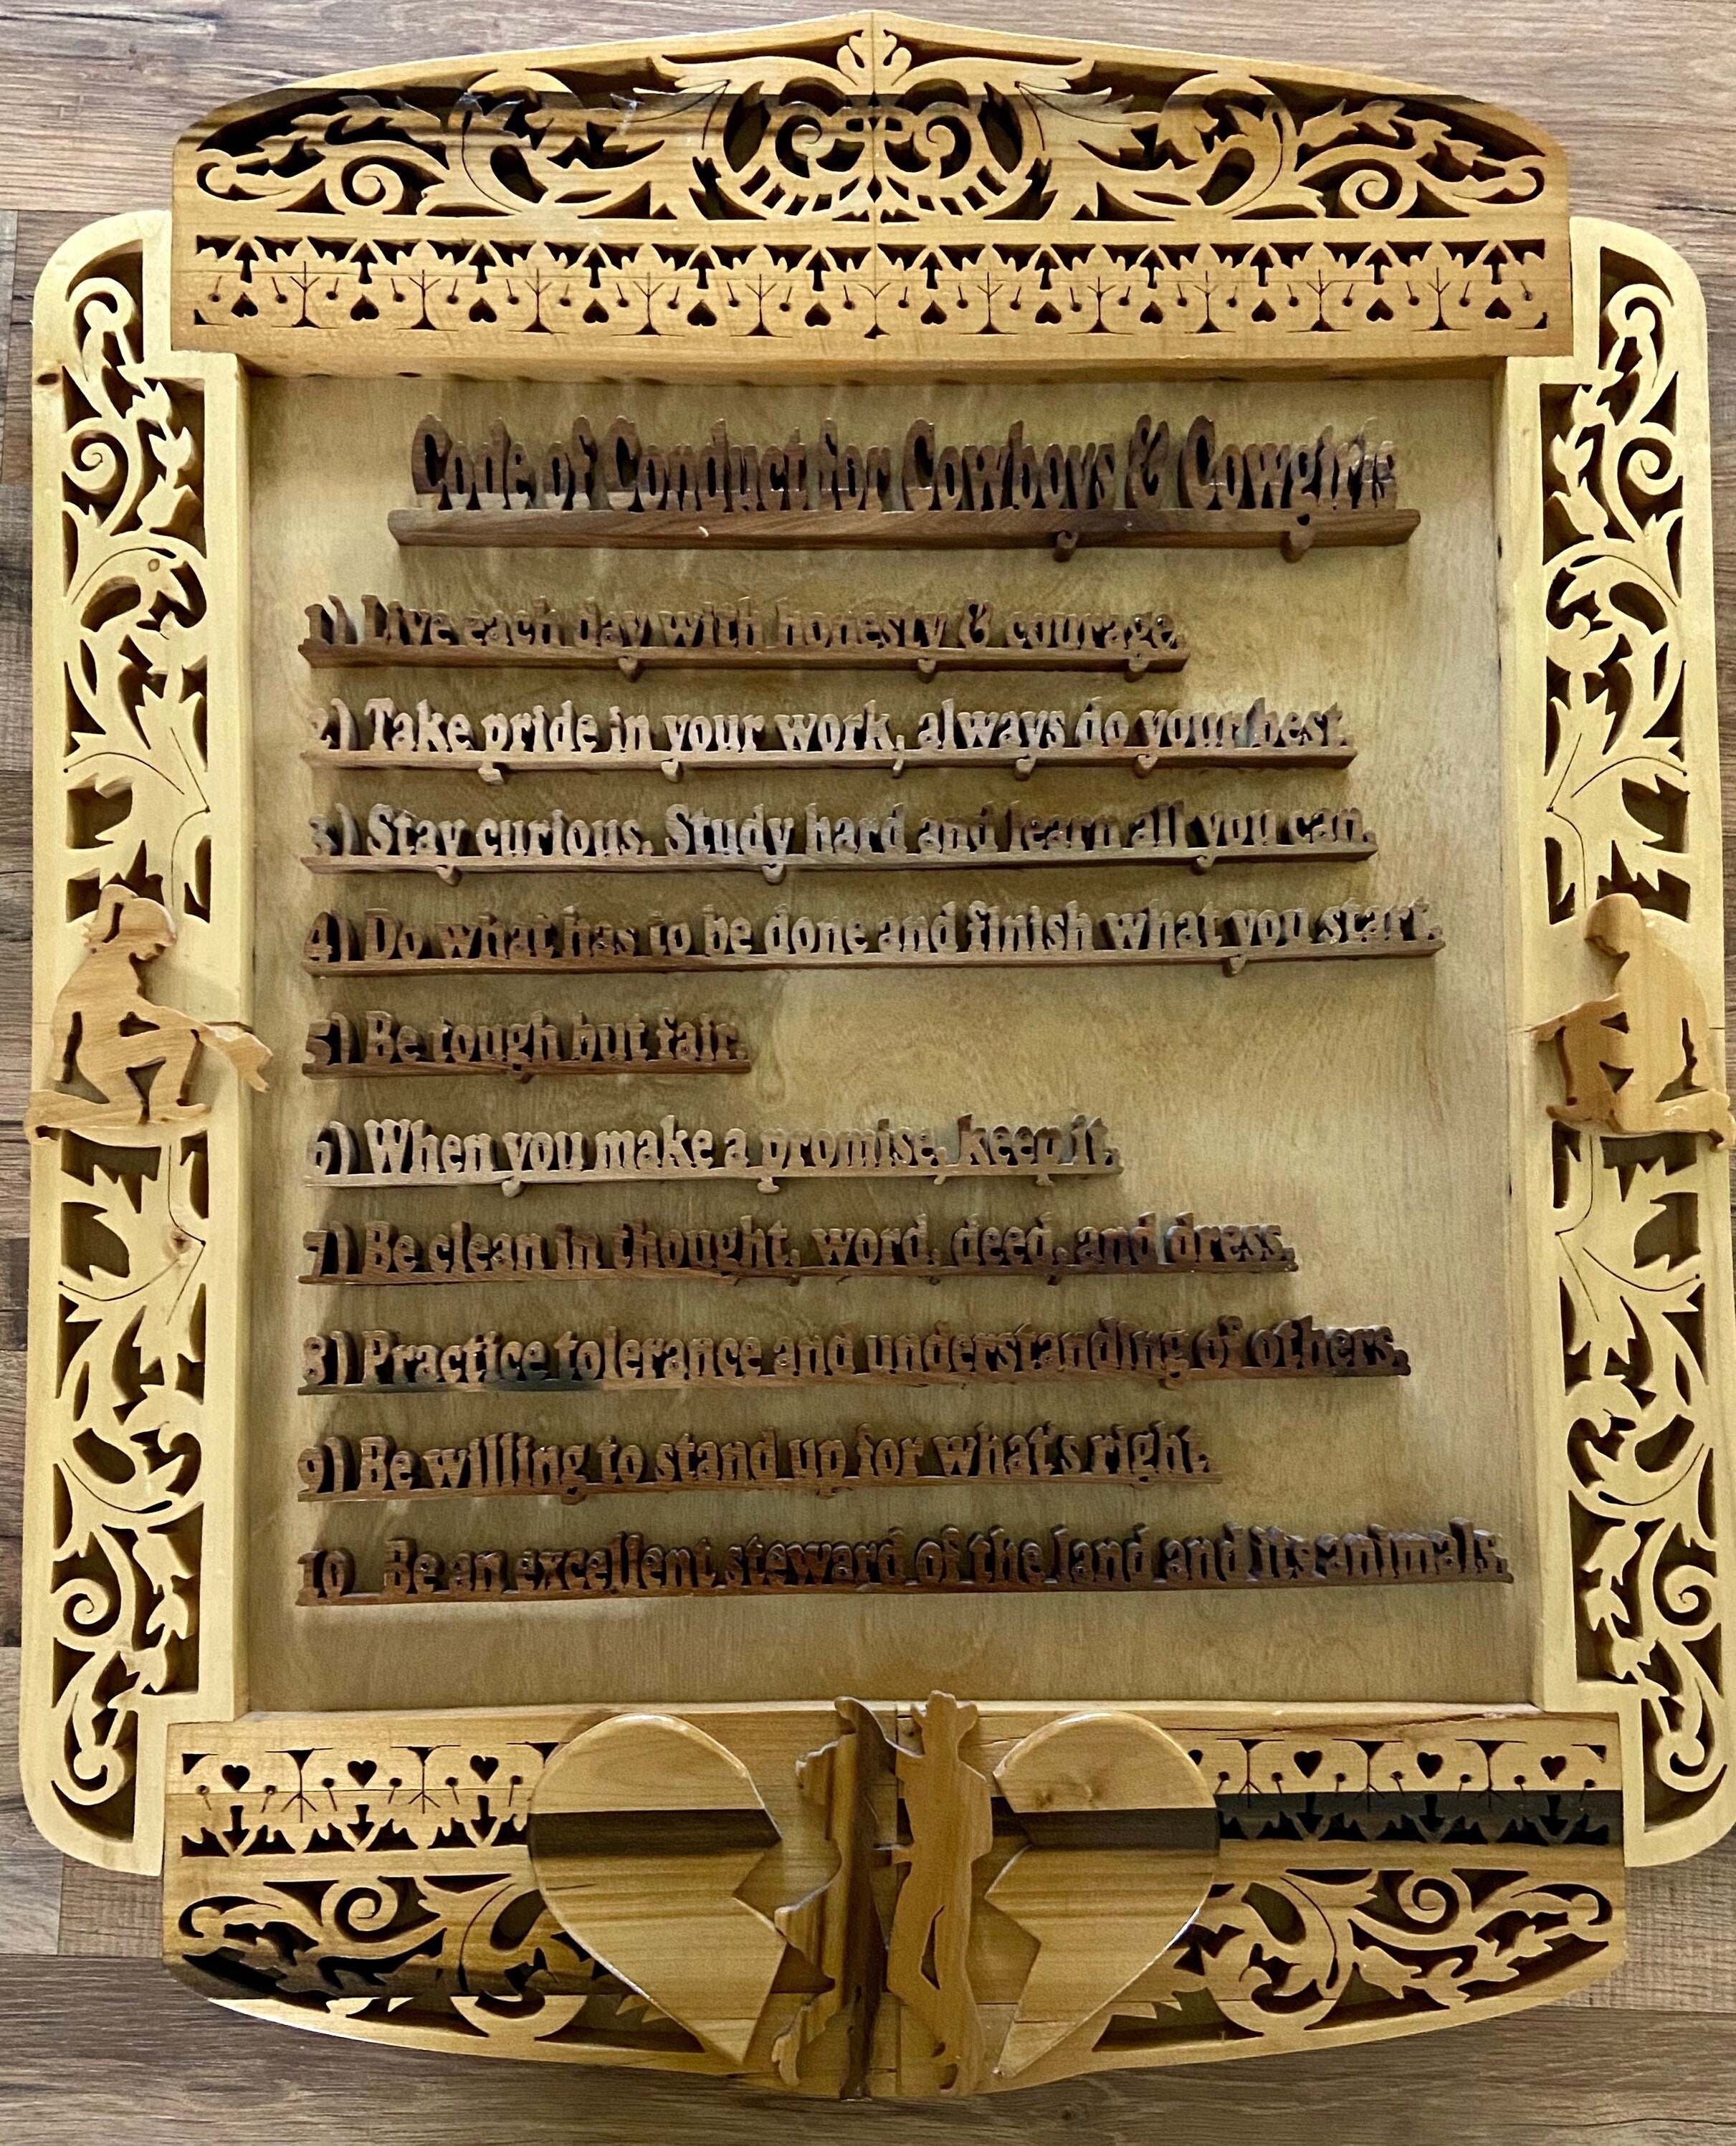 Code of Conduct for Cowboys & Cowgirls
1) Live each day with honesty & courage.
2) Take pride in your work, always do your best.
3) Stay curious. Study hard and learn all you can.
4) Do what has to be done and finish what you start.
5) Be tough but fair.
6) When you make a promise, keep it.
7) Be clean in thought, word, deed, and dress.
8) Practice tolerance and understanding of others.
9) Be willing to stand up for what's right.
10 Be an excellent steward of the land and its animals.